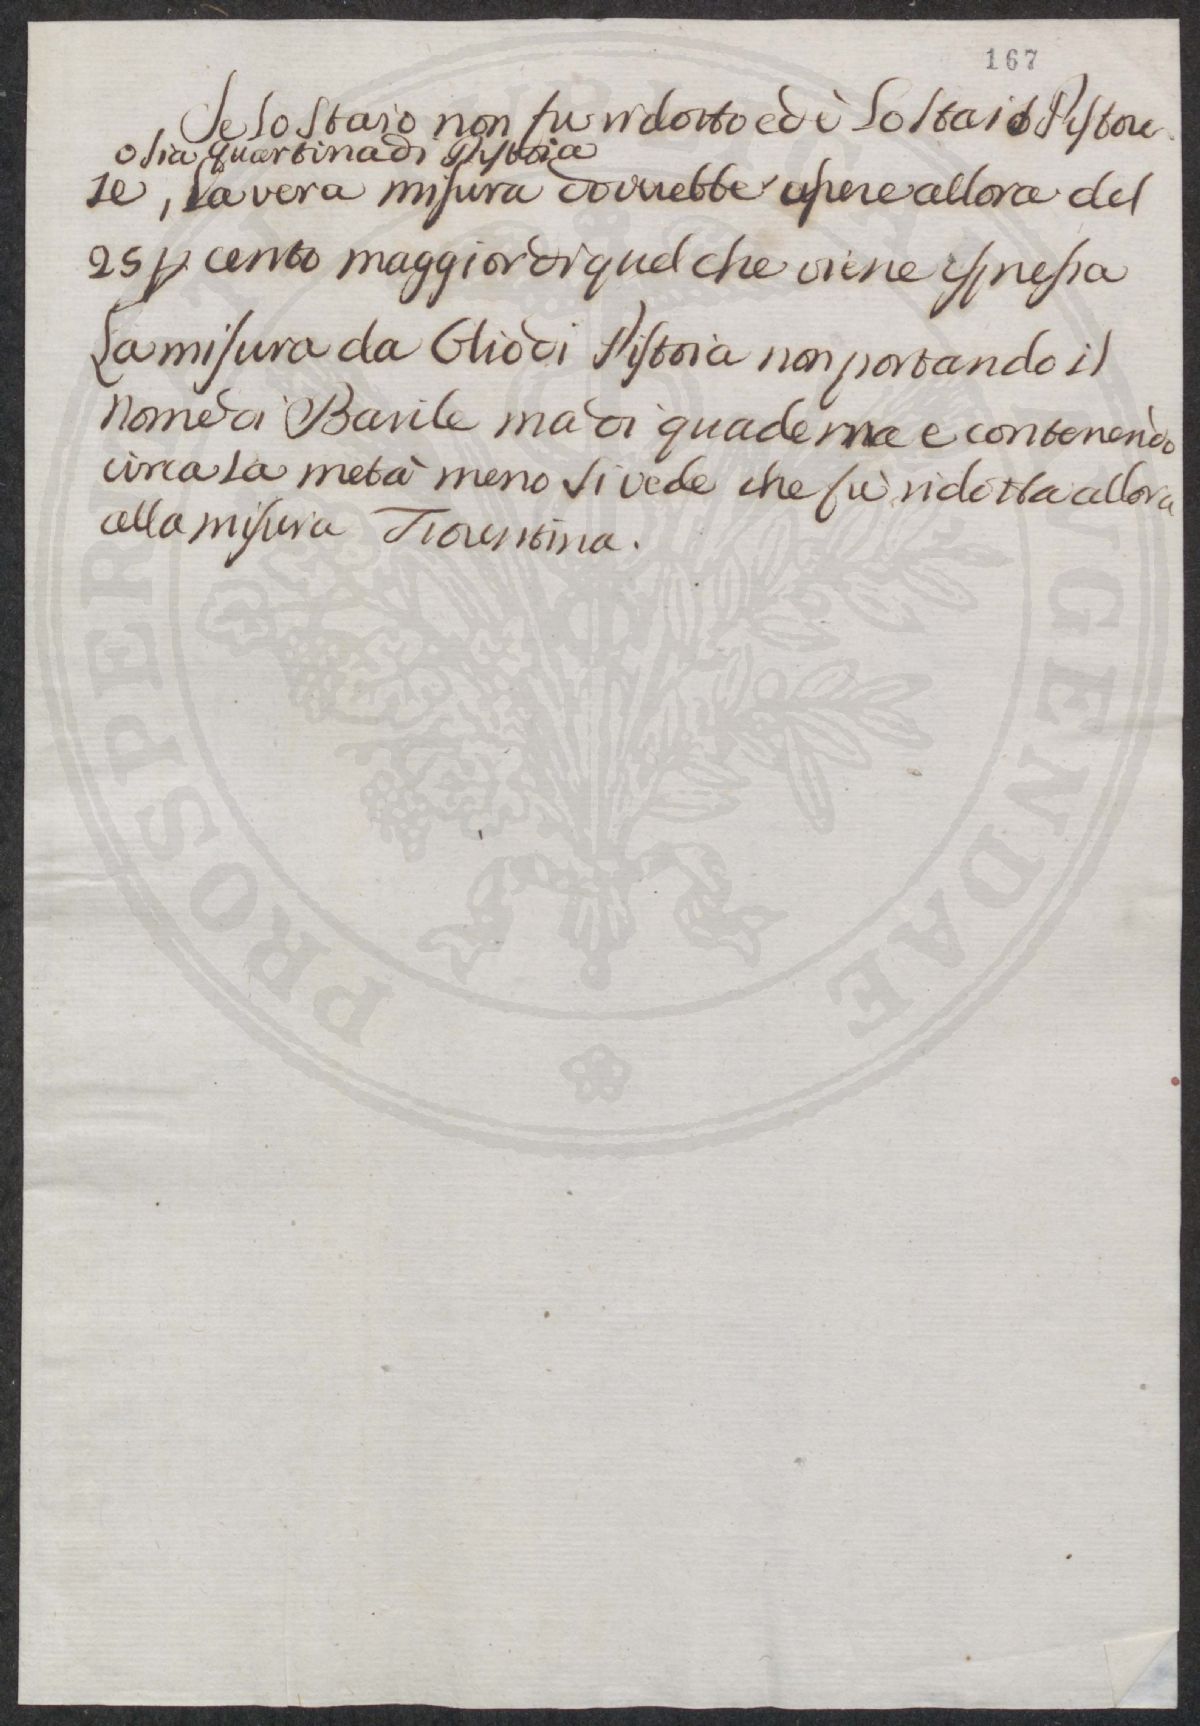 167
Se lo Staio non fu ridotto ed è lo Staio Pistore
o sia quartina di Pistoia
se, la vera misura dovrebbe essere allora del
25 p cento maggior di quel che viene espressa
La misura da Olio di Pistoia non portando il
nome di Barile ma di quaderna e contenendo
circa la metà meno si vede che fù ridotta allora
alla misura Fiorentina.
PROSPERITATI PUBLICAE AUGENDAE